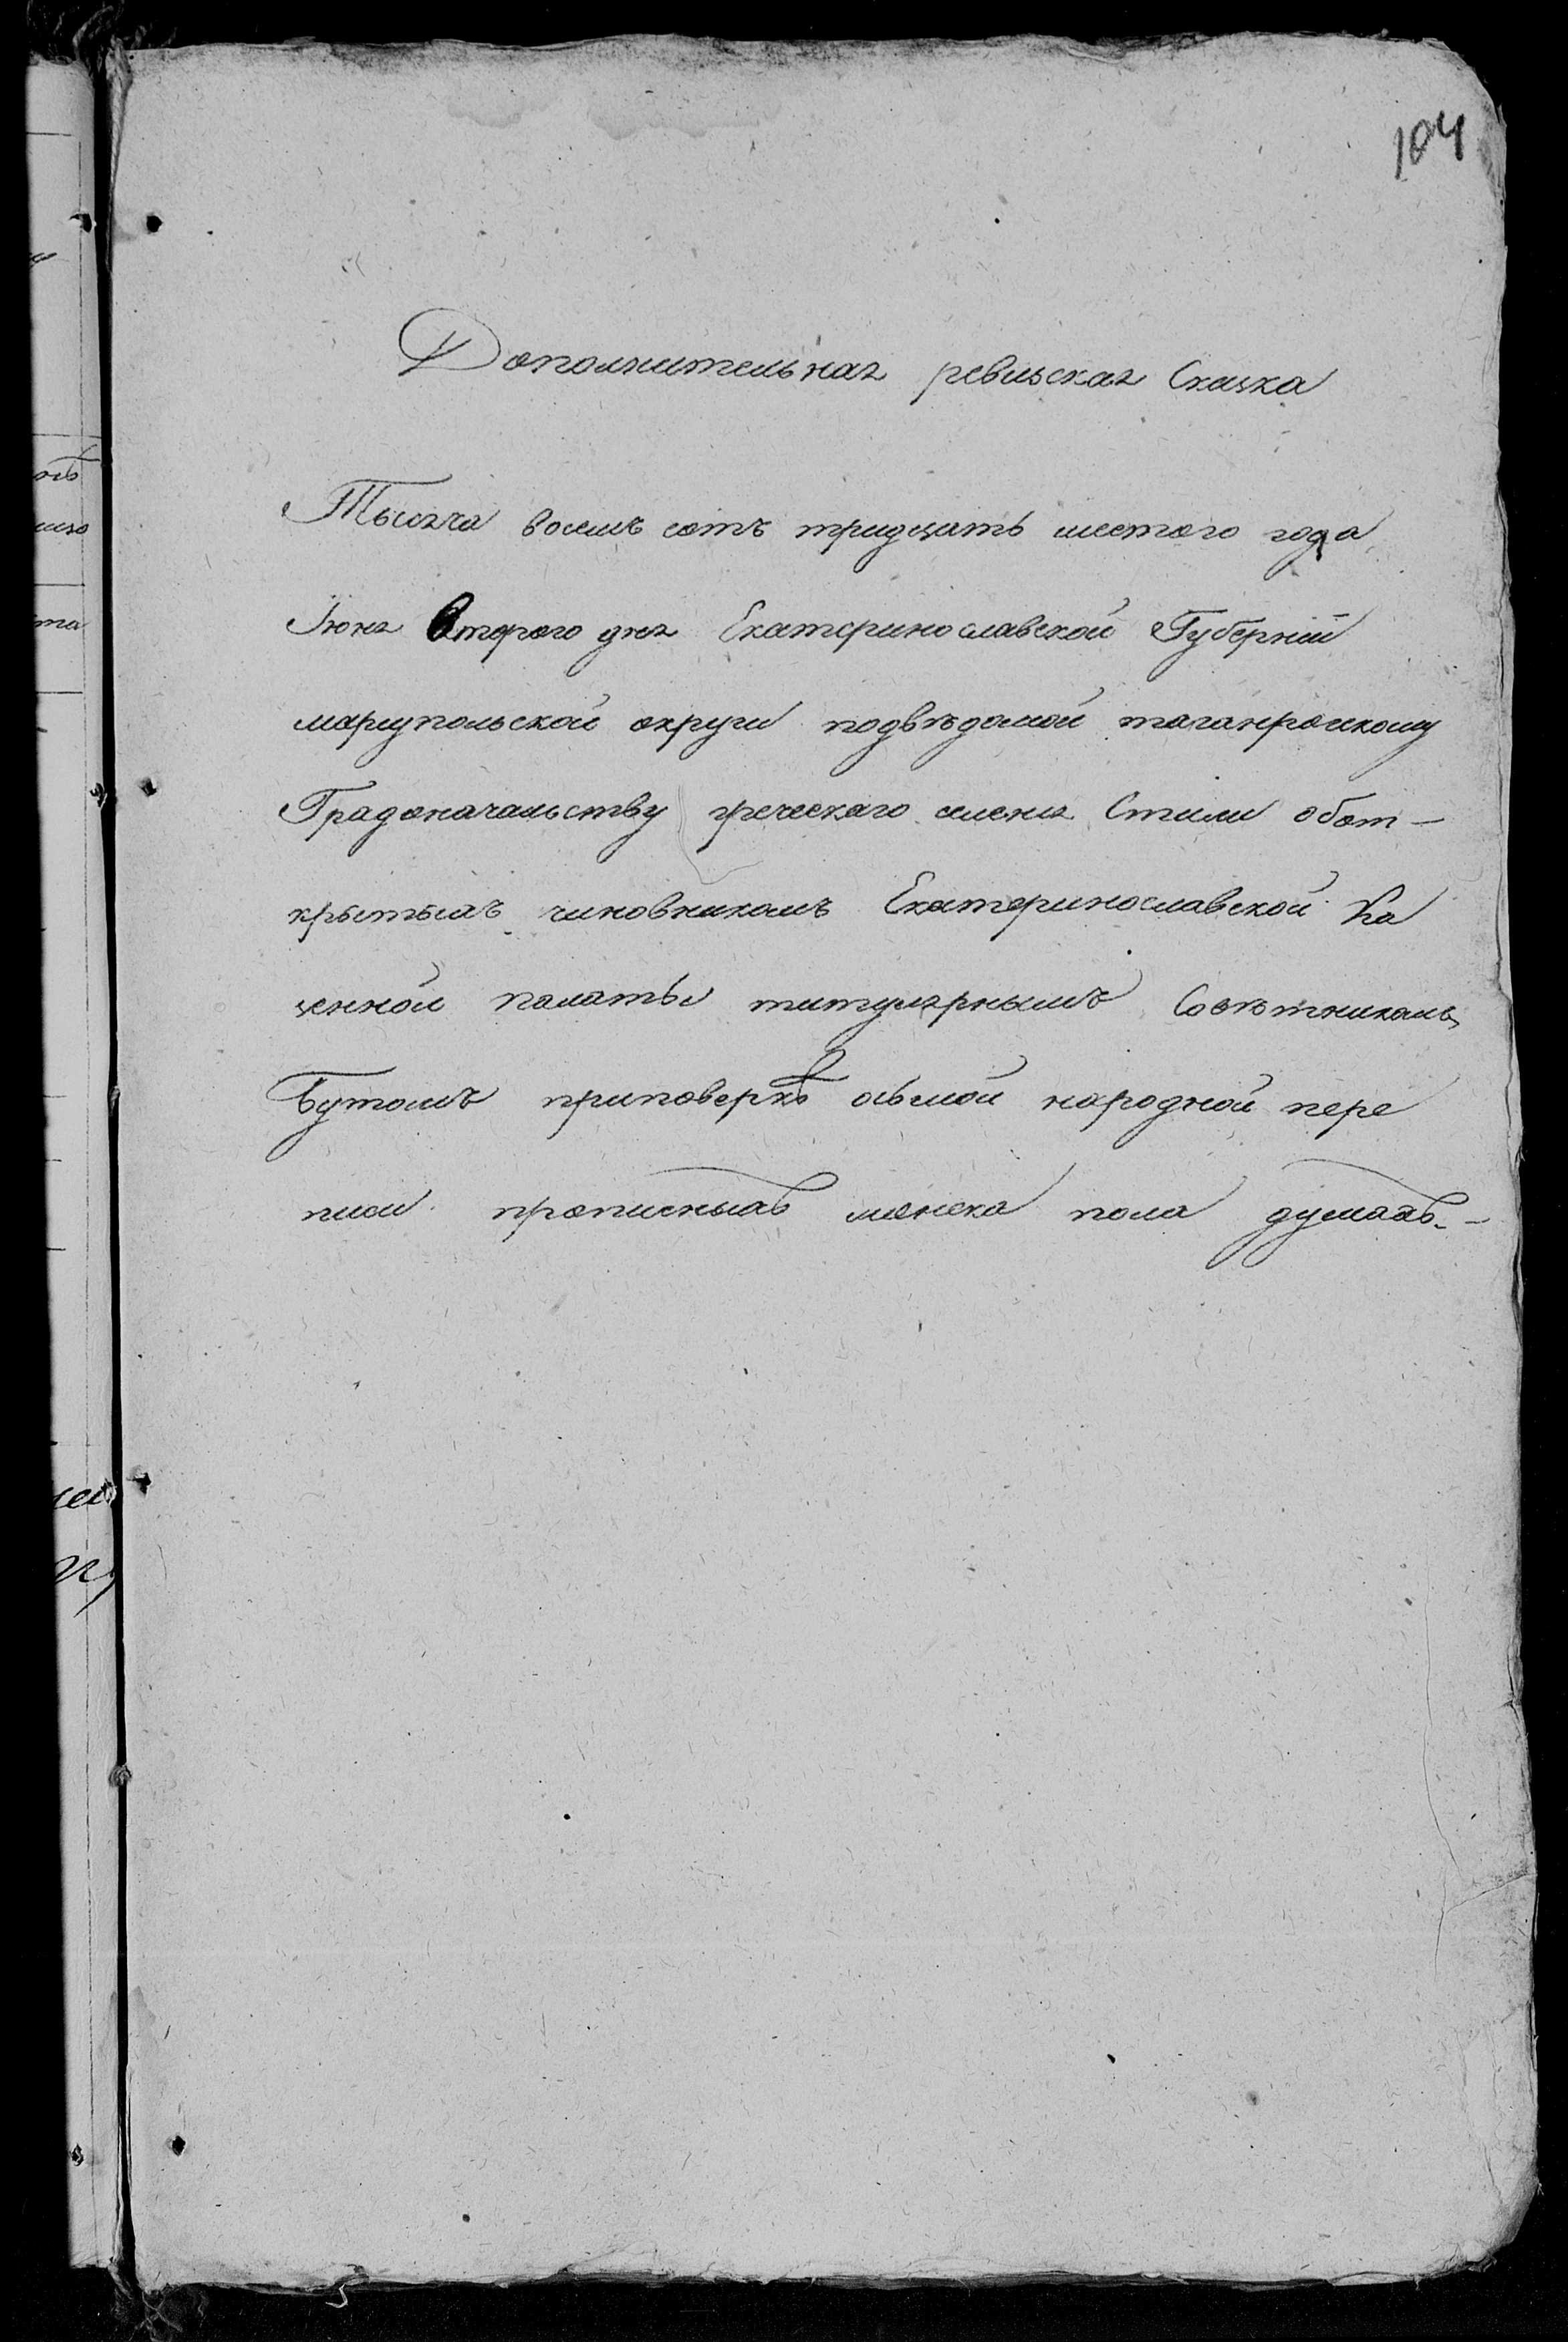 104
Дополнительная ревизская Сказка
Тысяча восемь сотъ тридцать шестого года
Іюня второго дня Екатеринославской Губерніи
мариупольской округи подвѣдомой таганроскому
Градоначальству греческаго селения Стили обот-
крытыхъ чиновникомъ Екатеринославской Ка
зенной палаты титулярнымъ Совѣтникомъ
Бутомъ приповеркѣ осьмой народной пере
писи прописныхъ мужеска пола душахъ.-